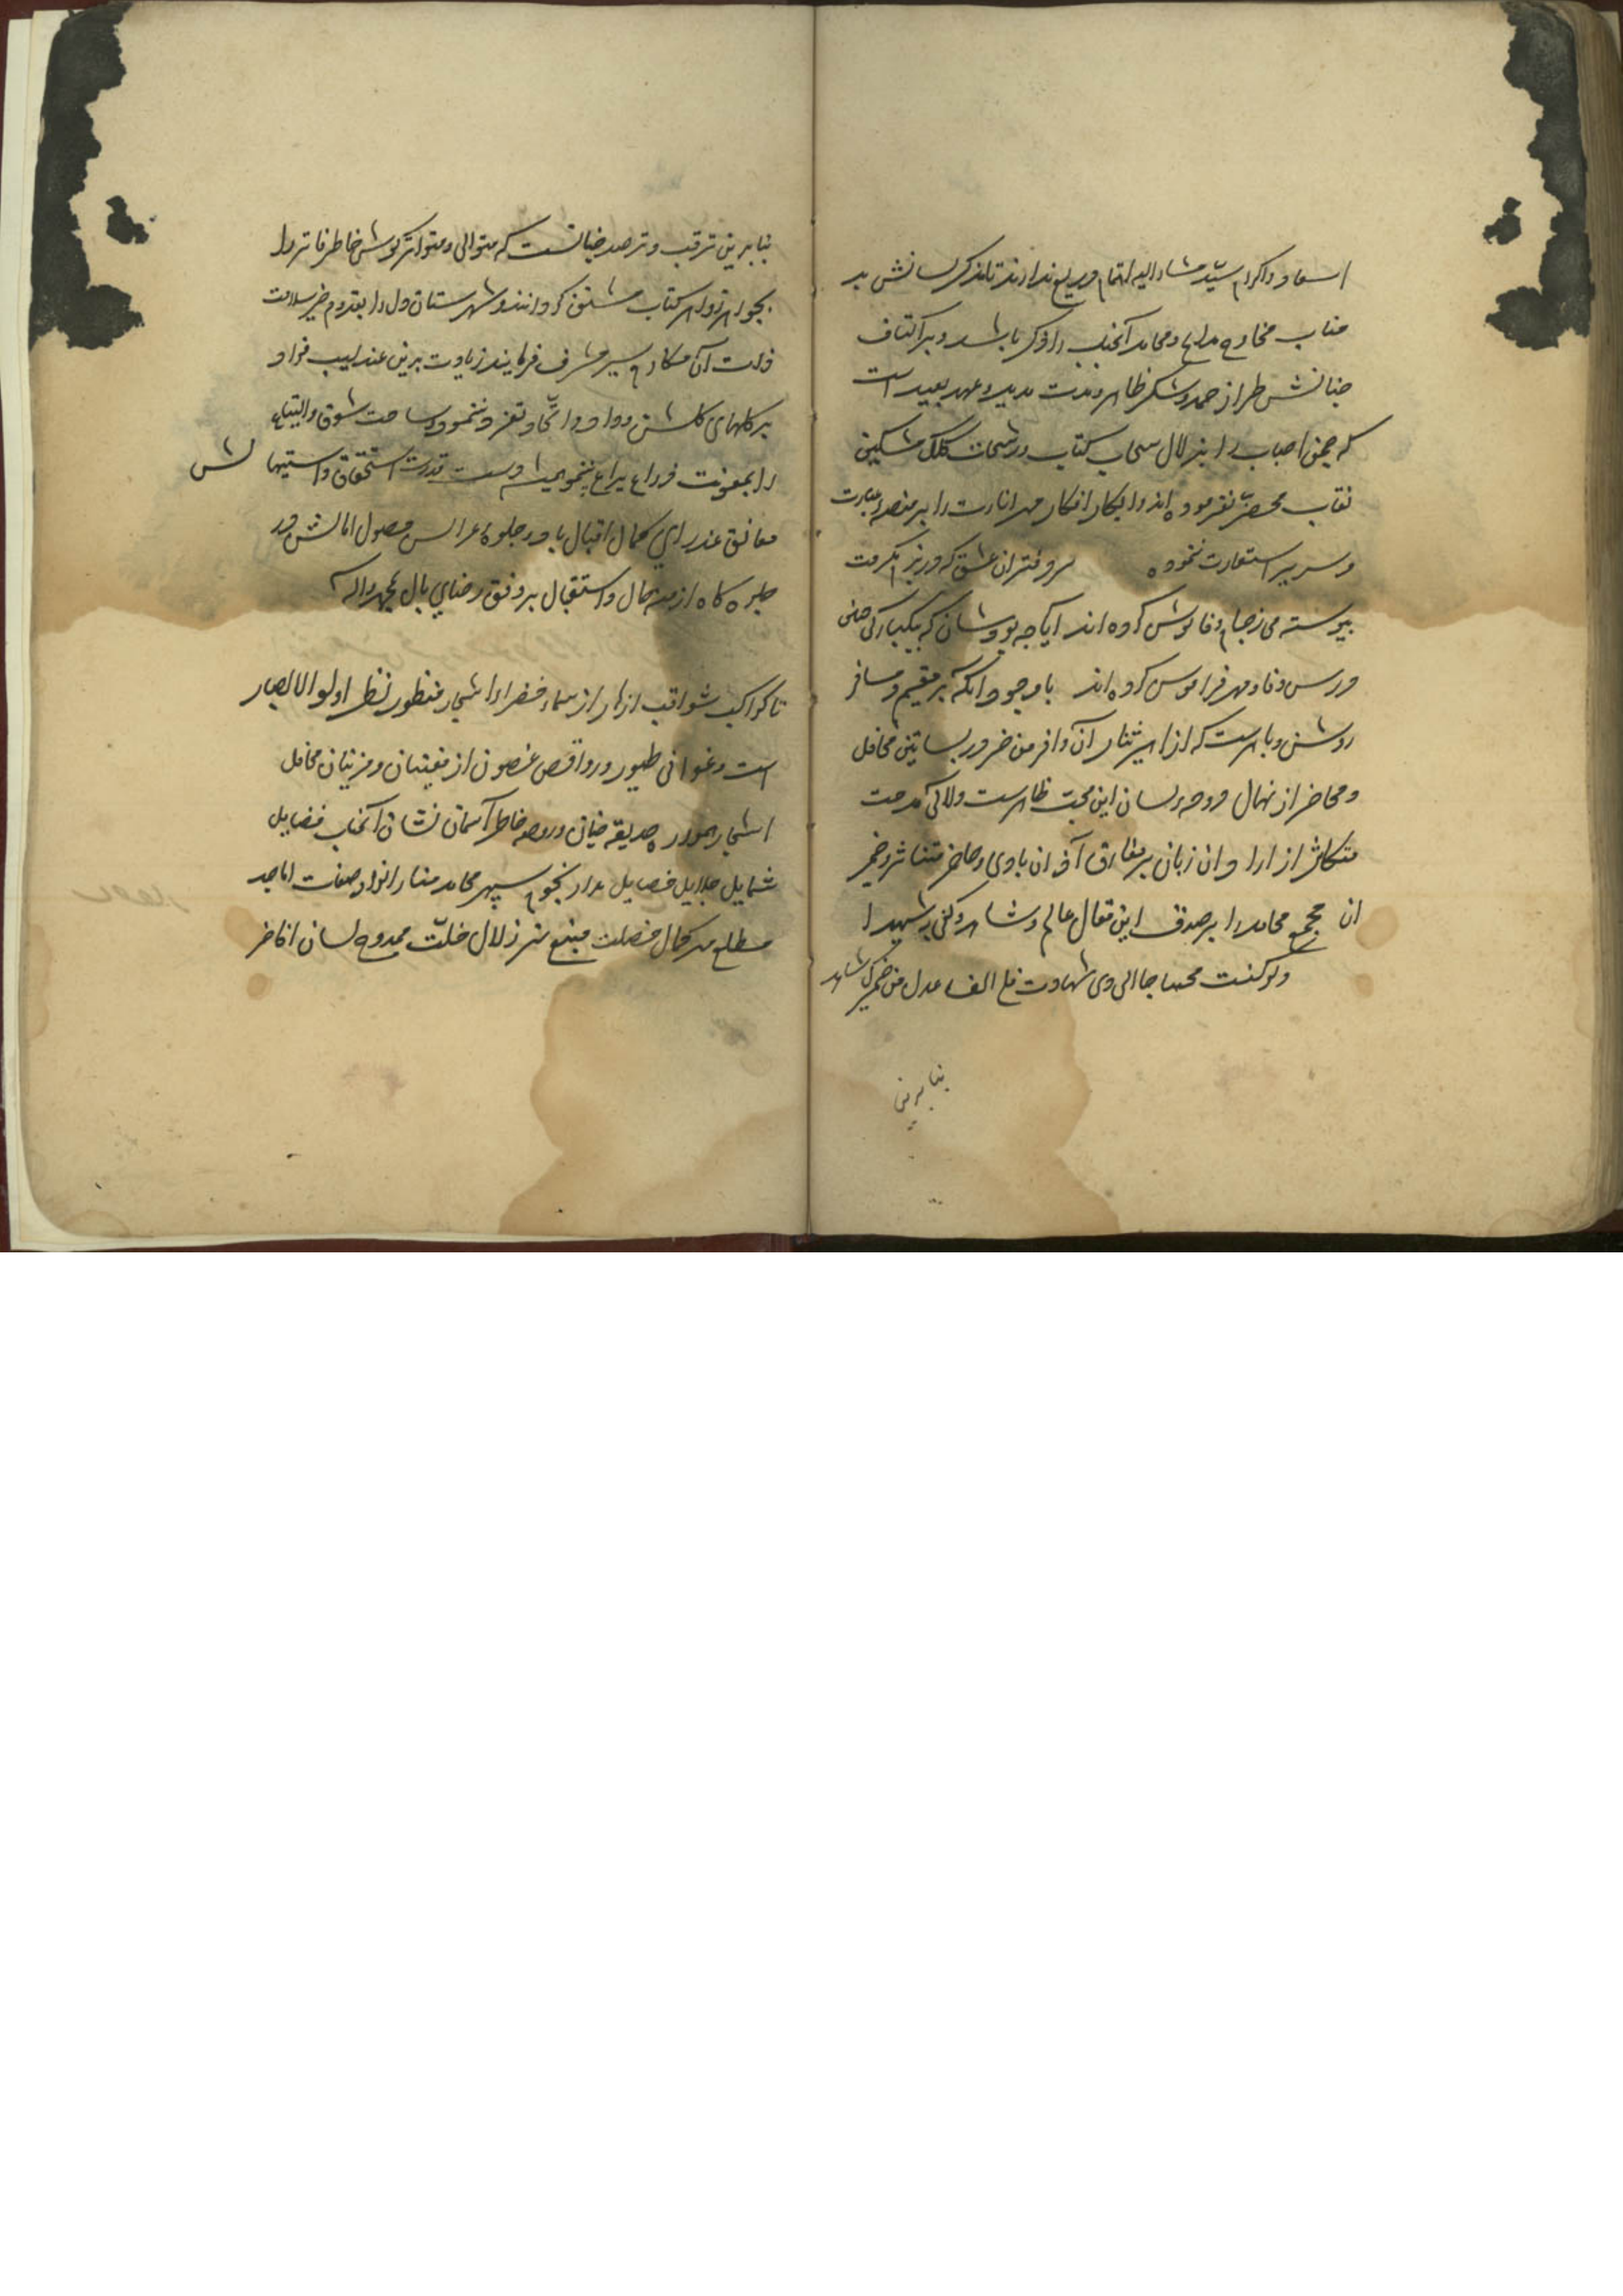 اسعاد و اکرام سیّد مشار الیه اهتمام دریغ ندارند تا مذکر لسانش بر
منابر مخارج مدایح و محامد آنجناب ذاکر باشد و بر اکتاف
جنانش طراز حمد و شکر ظاهر و مدت مدید و عهد بعید است
که چمن احباب را بزلال سحاب کتاب و رشحات کلک مشکین
نقاب مخضرّ نفرموده اند و ابکار افکار مهر انارت را بر منصه عبارت
و سریر استعارت ننموده سر دفتران عشق که در بزم مکرمت
پیوسته می ز جام وفا نوش کرده اند آیا چه بود شان که بیکبارگی چنین
درس وفا و مهر فراموش کرده اند با وجود آنکه بر مقیم و مسافر
روشن و باهرست که ازاهیر ثنای آن وافر من خرور بساتین محافل
و محاضر از نهال دوحه لسان این محبت ظاهرست و لآلی مدحت
متکاثر از اردان زبان بر مفارق آذان بادی و حاضر متناثر و ضمیر
ان مجمع محامد را بر صدق این مقال عالم و شاهد و کفی به شهیدا
ولو کنت محتاجا الی ذی شهادت فلی الف عدل من ضمیرک شاهد
بنا برین
بنا برین ترقب و ترصد چنانست که متوالی و متواتر گوش خاطر فاتر را
بجواهر زواهر کتاب مشنّف گردانند و شهرستان دل را بقدوم خبر سلامت
ذات آن مکارم سیر مشرف فرمایند زیادت برین عندلیب فواد
بر گلهای گلشن وداد و اتّحاد تغرد ننمود و ساحت شوق و التیاع
را بمعونت ذراع یراع نپیمود همیشه دست قدرت استحقاق و استیهالش
معانق عذرای کمال اقبال باد و جلوۀ عرایس حصول امالش در
جلوه گاه ازمنه حال و استقبال بر وفق رضای بال بمحمد و اله
تا کواکب ثواقب ازهار از سماء خضراء اشجار منظور نظر اولو الابصار
است و غوانی طیور و رواقص غصون از مغنیان و مزینان محافل
اشجار همواره حدیقه جنان و روضه خاطر آسمان نشان آنجناب فضایل
شمایل جلایل خصایل مدار نجوم سپهر محامد منار انوار صفات اماجد
مطلع مهر کمال خصلت منبع نهر زلال خلّت ممدوح لسان افاخر